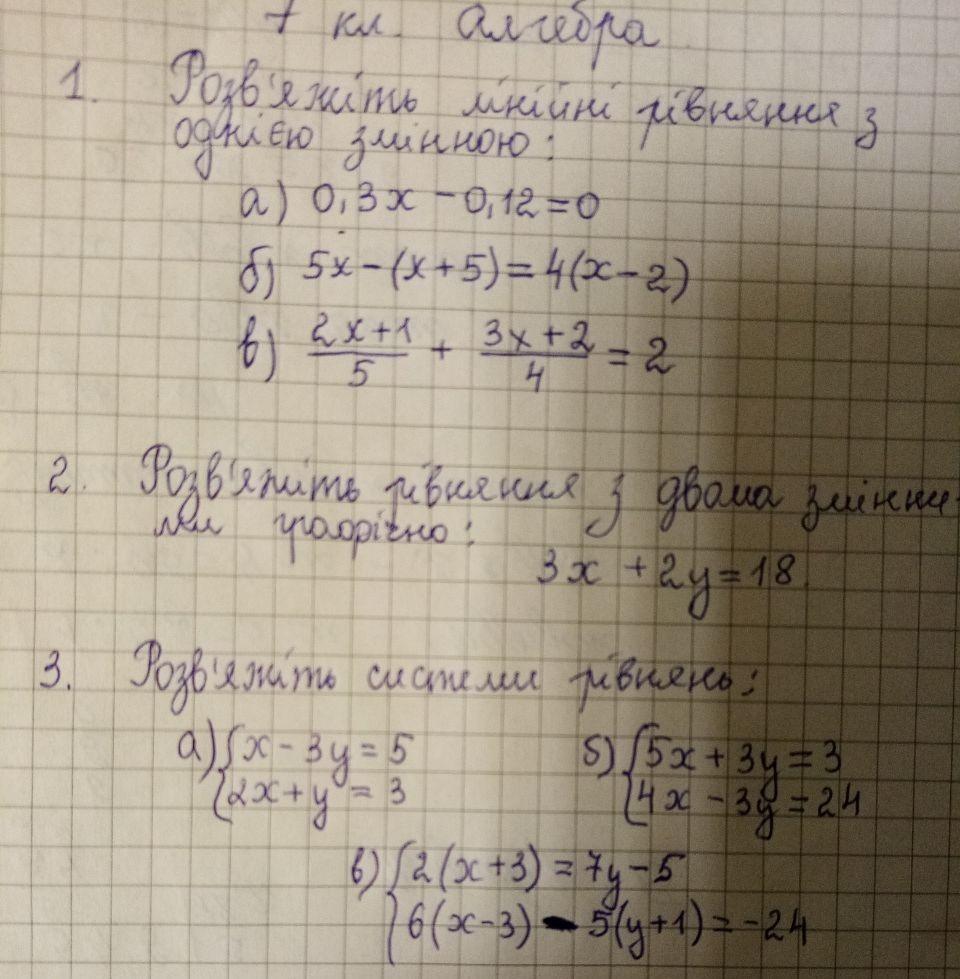 7 кл. Алгебра
1. Розв'яжіть лінійні рівняння з
однією змінною:
а) 0,3x - 0,12 = 0
б) 5x - (x + 5) = 4(x - 2)
в) (2x+1)/5 + (3x+2)/4 = 2
2. Розв'яжіть рівняння з двома змінни-
ми графічно:
3x + 2y = 18
3. Розв'яжіть системи рівнянь:
а) { x - 3y = 5 б) { 5x + 3y = 3
{ 2x + y = 3 { 4x - 3y = 24
в) { 2(x+3) = 7y - 5
{ 6(x-3) - 5(y+1) = -24